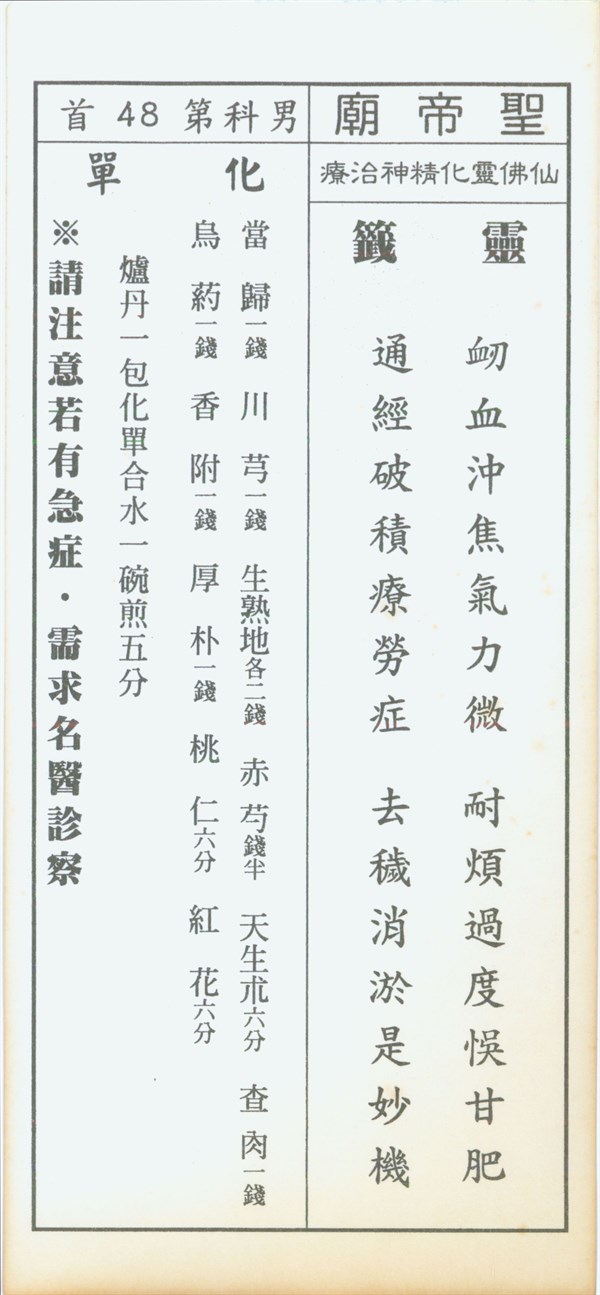 聖帝廟
仙佛靈化精神治療
靈籤
衂血沖焦氣力微　耐煩過度悞甘肥
通經破積療勞症　去穢消淤是妙機
男科第48首
化單
當歸一錢　川芎一錢　生熟地各二錢　赤芍錢半　天生朮六分　查肉一錢
烏葯一錢　香附一錢　厚朴一錢　桃仁六分　紅花六分
爐丹一包化單合水一碗煎五分
※請注意若有急症・需求名醫診察